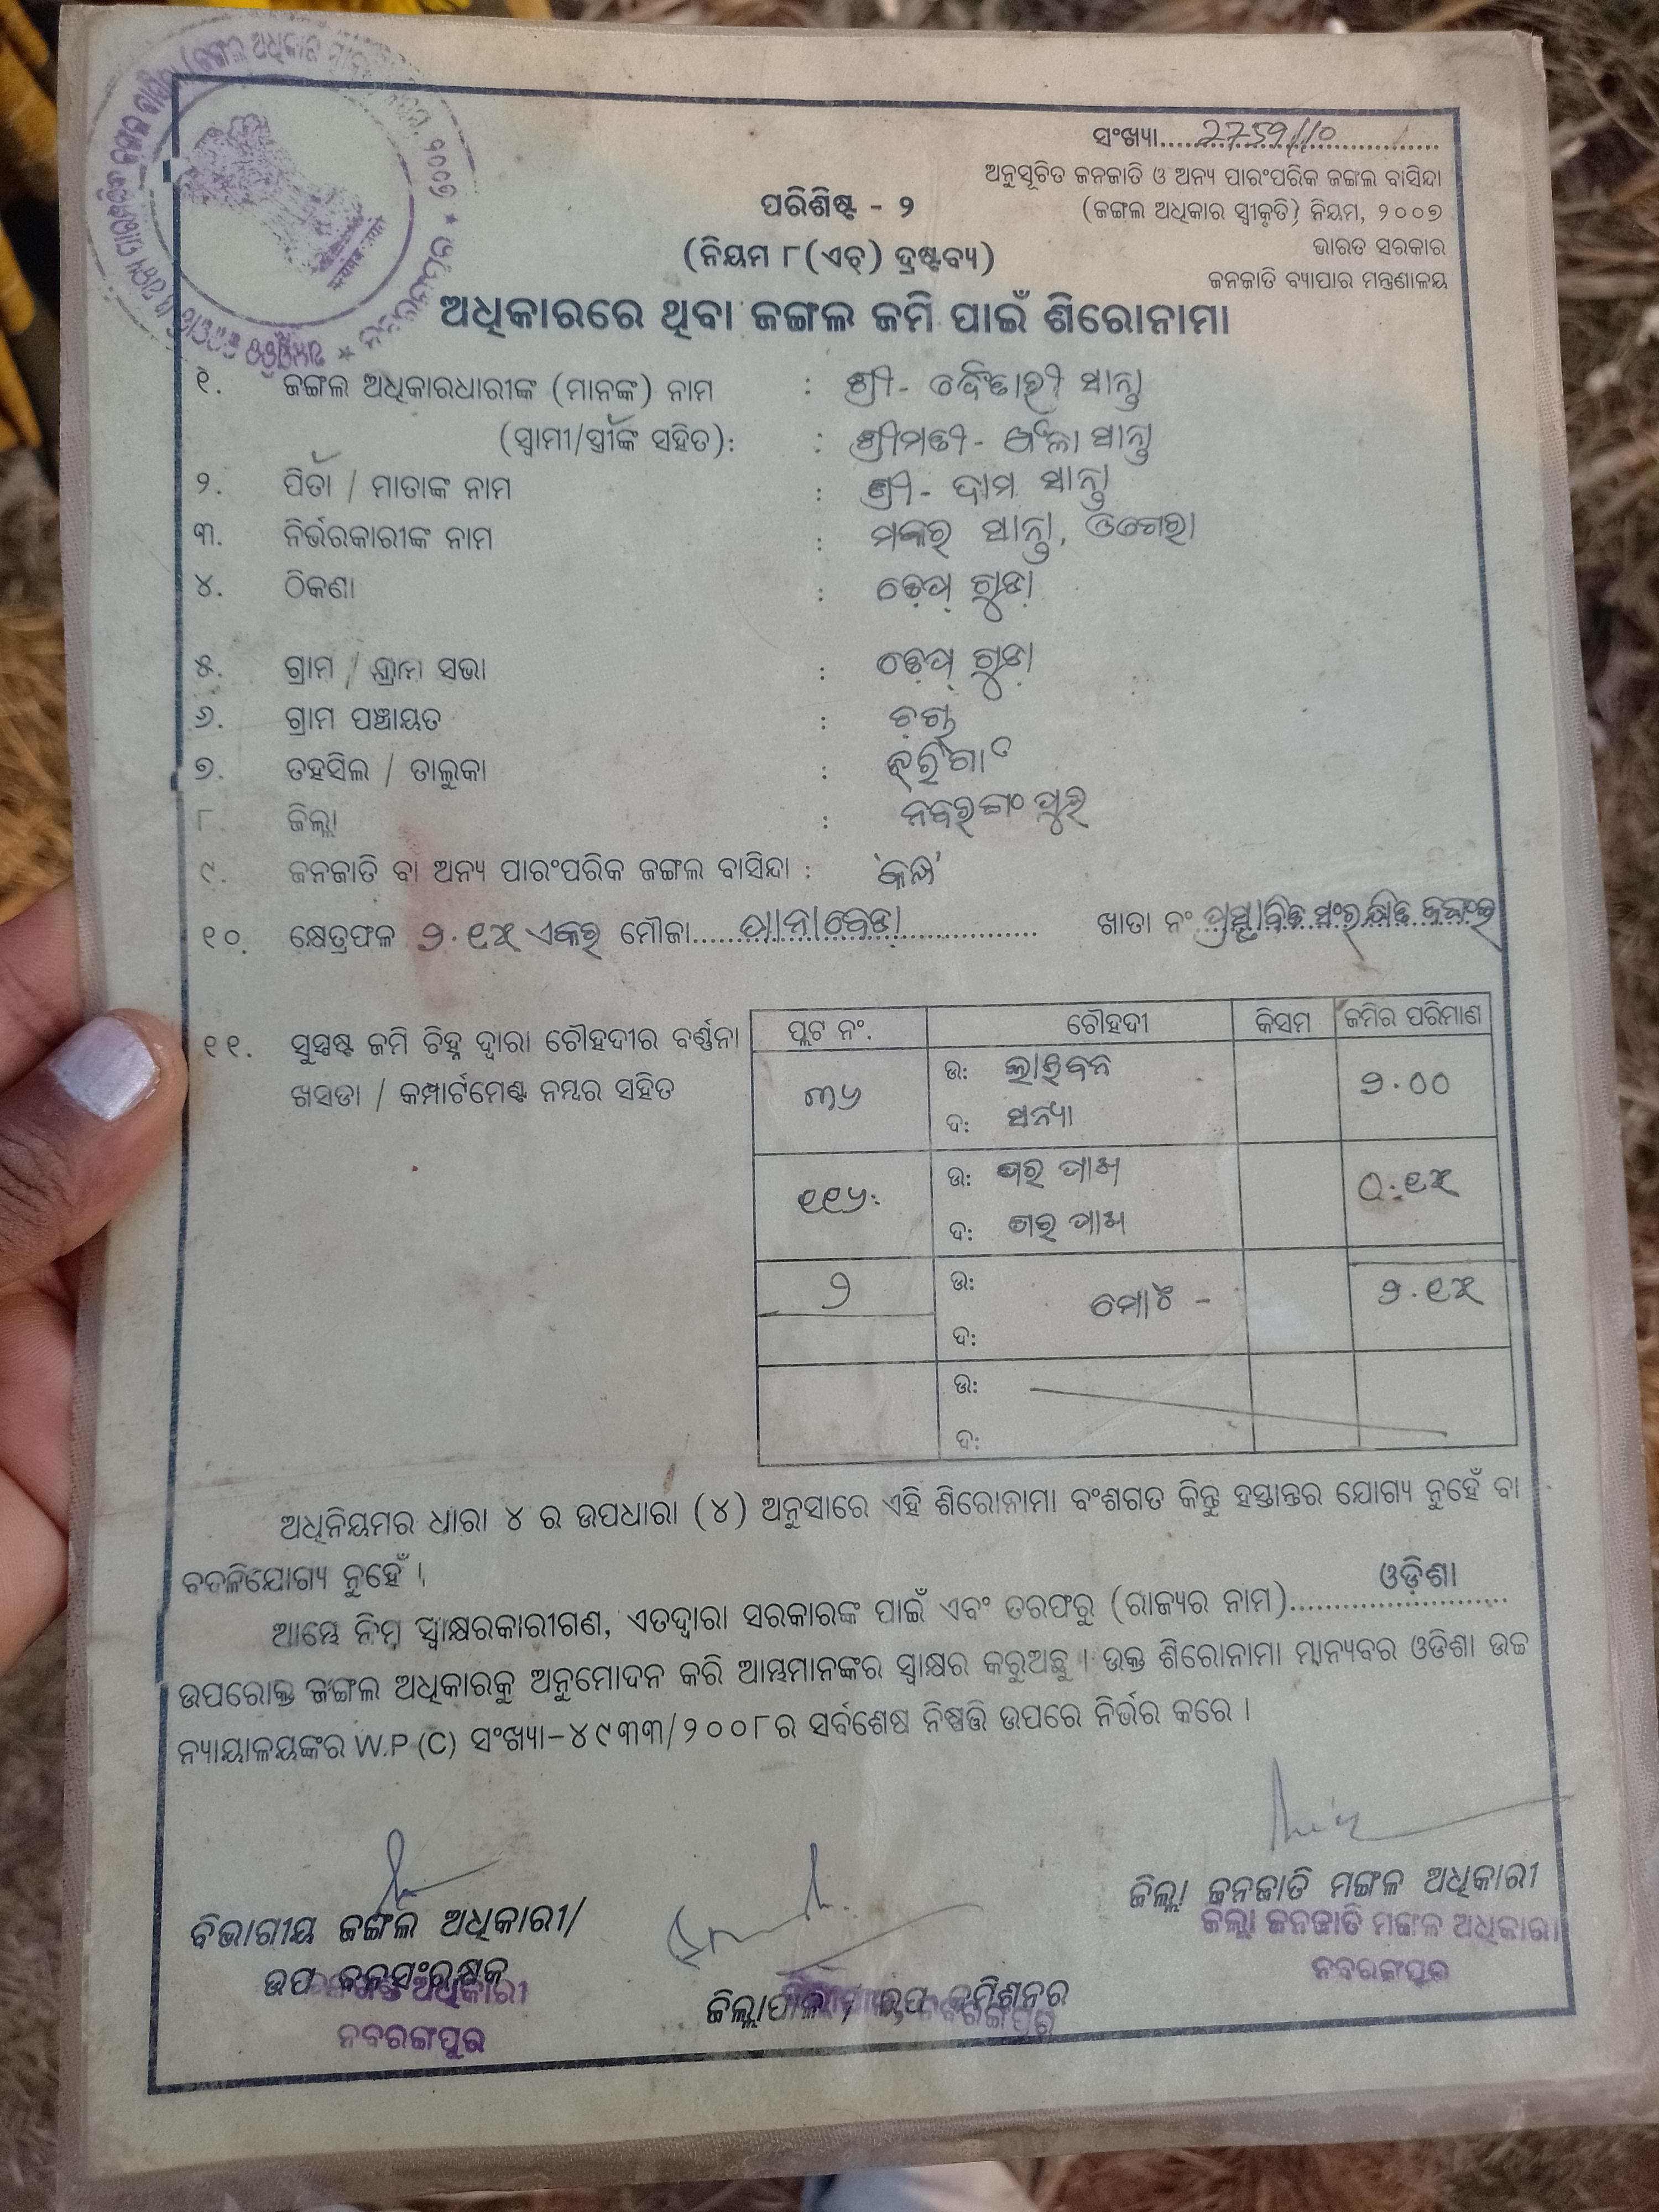 ସଂଖ୍ୟା..........2759/10..........
ଅନୁସୂଚିତ ଜନଜାତି ଓ ଅନ୍ୟ ପାରଂପରିକ ଜଙ୍ଗଲ ବାସିନ୍ଦା
(ଜଙ୍ଗଲ ଅଧିକାର ସ୍ୱୀକୃତି) ନିୟମ, ୨୦୦୭
ଭାରତ ସରକାର
ଜନଜାତି ବ୍ୟାପାର ମନ୍ତ୍ରଣାଳୟ
ପରିଶିଷ୍ଟ - ୨
(ନିୟମ ୮(ଏଚ୍) ଦ୍ରଷ୍ଟବ୍ୟ)
ଅଧିକାରରେ ଥିବା ଜଙ୍ଗଲ ଜମି ପାଇଁ ଶିରୋନାମା
୧. ଜଙ୍ଗଲ ଅଧିକାରଧାରୀଙ୍କ (ମାନଙ୍କ) ନାମ : ଶ୍ରୀ - ସାନ୍ତା
(ସ୍ୱାମୀ/ସ୍ତ୍ରୀଙ୍କ ସହିତ): : ଶ୍ରୀମତୀ - ସାନ୍ତା
୨. ପିତା / ମାତାଙ୍କ ନାମ : ଶ୍ରୀ - ଦାମ ସାନ୍ତା
୩. ନିର୍ଭରକାରୀଙ୍କ ନାମ : ମକର ସାନ୍ତା, ଓଗେରା
୪. ଠିକଣା : ଗୁଡ଼ା
୫. ଗ୍ରାମ / ଗ୍ରାମ ସଭା : ଗୁଡ଼ା
୬. ଗ୍ରାମ ପଞ୍ଚାୟତ :
୭. ତହସିଲ / ତାଲୁକା : ଝରିଗାଁ
୮. ଜିଲ୍ଲା : ନବରଙ୍ଗପୁର
୯. ଜନଜାତି ବା ଅନ୍ୟ ପାରଂପରିକ ଜଙ୍ଗଲ ବାସିନ୍ଦା : 'କନ୍ଧ'
୧୦. କ୍ଷେତ୍ରଫଳ ୨.୧୫ ଏକର ମୌଜା.....ଧାନାବେଡ଼ା..... ଖାତା ନଂ ପ୍ରସ୍ତାବିତ ସଂରକ୍ଷିତ ଜଙ୍ଗଲ
୧୧. ସୁସ୍ପଷ୍ଟ ଜମି ଚିହ୍ନ ଦ୍ୱାରା ଚୌହଦୀର ବର୍ଣ୍ଣନା
ଖସଡା / କମ୍ପାର୍ଟମେଣ୍ଟ ନମ୍ବର ସହିତ
ପ୍ଲଟ ନଂ. ଚୌହଦୀ କିସମ ଜମିର ପରିମାଣ
୩୬ ଉ: ୨.୦୦
ଦ:
୧୧୬ ଉ: ୦.୧୫
ଦ:
୨ ଉ: ମୋଟ - ୨.୧୫
ଦ:
ଉ:
ଦ:
ଅଧିନିୟମର ଧାରା ୪ ର ଉପଧାରା (୪) ଅନୁସାରେ ଏହି ଶିରୋନାମା ବଂଶଗତ କିନ୍ତୁ ହସ୍ତାନ୍ତର ଯୋଗ୍ୟ ନୁହେଁ ବା
ବଦଳିଯୋଗ୍ୟ ନୁହେଁ ।
ଆମ୍ଭେ ନିମ୍ନ ସ୍ୱାକ୍ଷରକାରୀଗଣ, ଏତଦ୍ୱାରା ସରକାରଙ୍କ ପାଇଁ ଏବଂ ତରଫରୁ (ରାଜ୍ୟର ନାମ)......ଓଡ଼ିଶା......
ଉପରୋକ୍ତ ଜଙ୍ଗଲ ଅଧିକାରକୁ ଅନୁମୋଦନ କରି ଆମ୍ଭମାନଙ୍କର ସ୍ୱାକ୍ଷର କରୁଅଛୁ । ଉକ୍ତ ଶିରୋନାମା ମାନ୍ୟବର ଓଡିଶା ଉଚ୍ଚ
ନ୍ୟାୟାଳୟଙ୍କର W.P (C) ସଂଖ୍ୟା-୪୯୩୩/୨୦୦୮ର ସର୍ବଶେଷ ନିଷ୍ପତ୍ତି ଉପରେ ନିର୍ଭର କରେ ।
ବିଭାଗୀୟ ଜଙ୍ଗଲ ଅଧିକାରୀ/
ଉପ ବନସଂରକ୍ଷକ
ଅଧିକାରୀ
ନବରଙ୍ଗପୁର
ଜିଲ୍ଲାପାଳ / ଉପ କମିଶନର
ନବରଙ୍ଗପୁର
ଜିଲ୍ଲା ଜନଜାତି ମଙ୍ଗଳ ଅଧିକାରୀ
ଜିଲ୍ଲା ଜନଜାତି ମଙ୍ଗଳ ଅଧିକାରୀ
ନବରଙ୍ଗପୁର